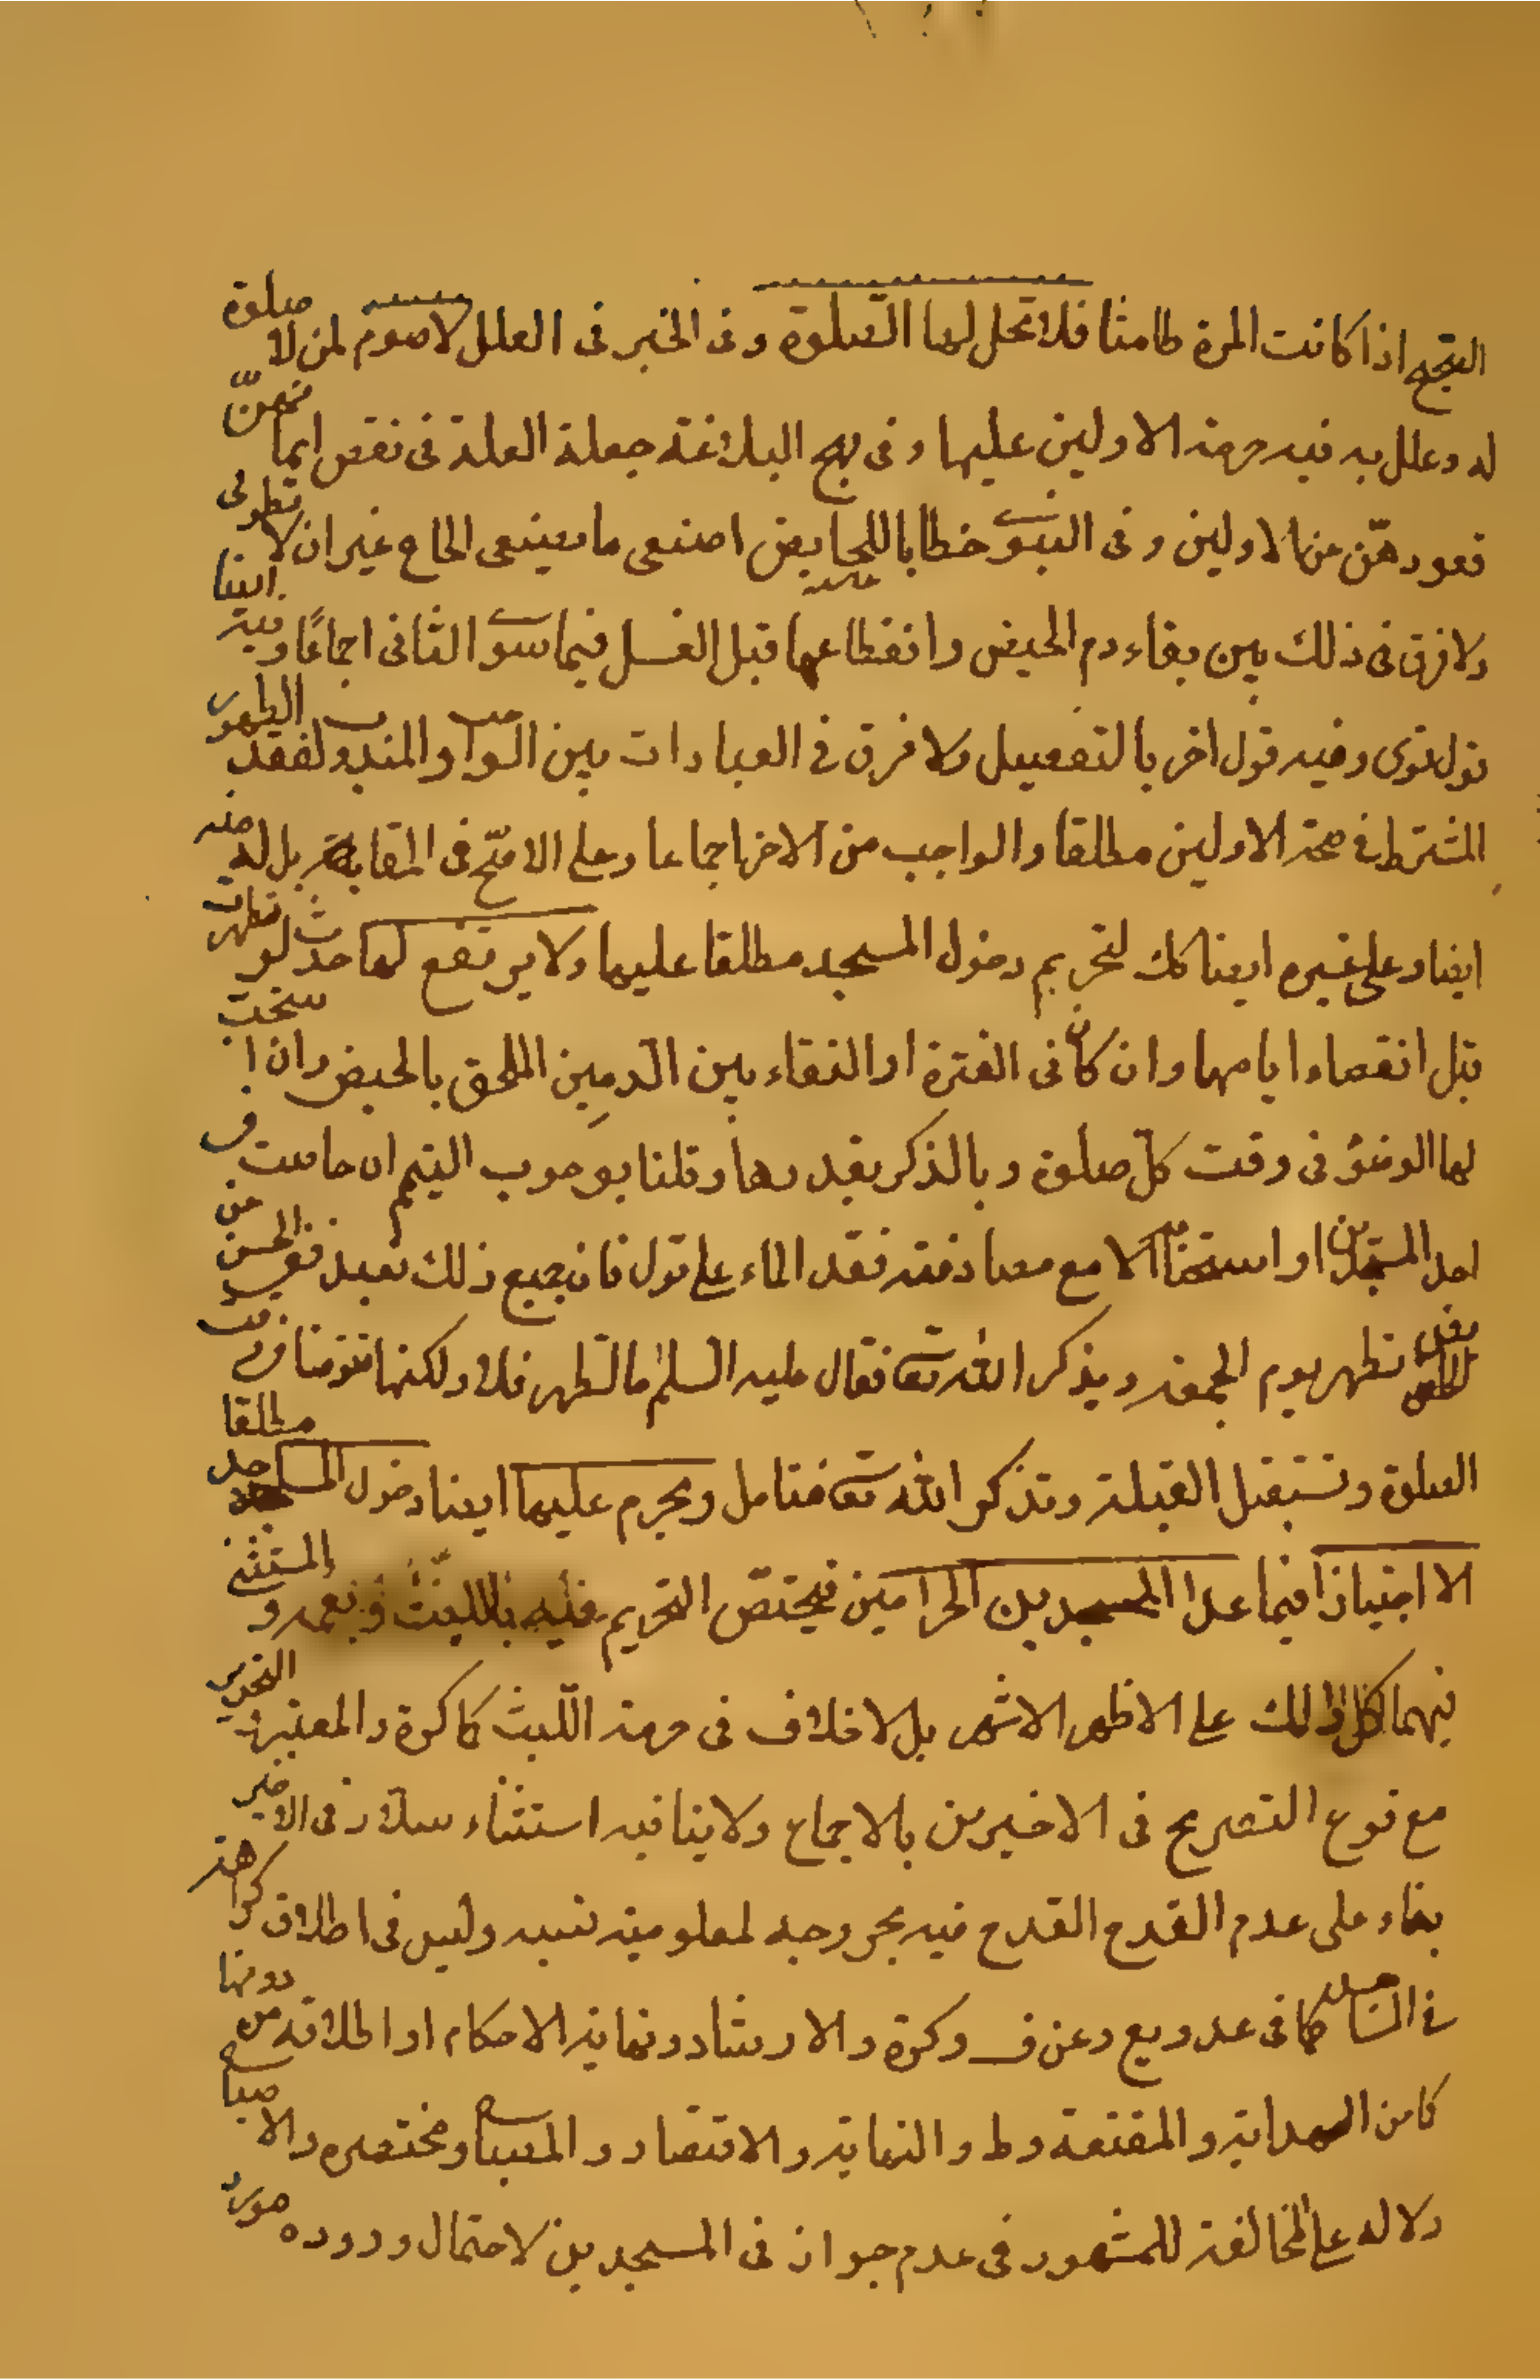 الصحيح اذا كانت المرة طامثا فلا تحل لها الصلوة وفى الخبر فى العلل لا صوم لمن لا صلوة
له وعلل به فيه حرمة الاولين عليها وفى نهج البلاغة جعلة العلة فى نقص ايمانهن
قعودهن عن الاولين وفى النبوى خطابا للحايض اصنعى ما يصنعى الحاج غير ان لا تطوفى
ولا فرق فى ذلك بين بقاء دم الحيض وانقطاعها قبل الغسل فيما سوى الثانى اجماعًا وفيه ايضا
قول قوى وفيه قول اخر بالتفصيل ولا فرق فى العبادات بين الواجب والمندوب لفقد الطهور
المشترط فى صحة الاولين مطلقا والواجب من الاخر اجماعا وعلى الاصح فى المقابلة بل له منه
ايضا وعلى غيره ايضا كك لتحريم دخول المسجد مطلقا عليها ولا يرتفع لها حدث لو تطهرت
قبل انقضاء ايامها وان كان فى الفترة او النقاء بين الدمين الملحق بالحيض وان استحب
لها الوضوء فى وقت كل صلوة وبالذكر بقدرها وقلنا بوجوب التيمم ان حاضت فى
احد المسجدين او استحبابه الا مع مصادفته فقد الماء على قول فان جميع ذلك تعبد ففى الحسن عن
الحايض تطهر يوم الجمعة ويذكر الله تعالى فقال عليه السلم ما لتطهر فلا ولكنها تتوضا فى وقت
الصلوة وتستقبل القبلة وتذكر الله تعالى فتامل ويحرم عليها ايضا دخول المساجد مطلقا
الا اجتيازا فيما عدا المسجدين الحرامين فيختص التحريم فيه باللبث ويعمه والمستثنى
فيهما كل ذلك على الاظهر الاشهر بل لا خلاف فى حرمة اللبث كما كرة والمعتبر والتحرير
مع نوع التصريح فى الاخيرين بالاجماع ولا ينافيه استثناء سلار فى الاخير
بناء على عدم القدح القدح فيه بخروجه لمعلومية نسبه وليس فى اطلاق كراهة
كما فى عد ويع وعن ف وكرة والارشاد ونهاية الاحكام او اطلاقه من دونها
كما من الهداية والمقنعة وط والنهاية والاقتصاد والمصباح ومختصره والاصباح
دلاله على المخالفة للمشهور فى عدم جواز فى المسجدين لاحتمال وروده مورد